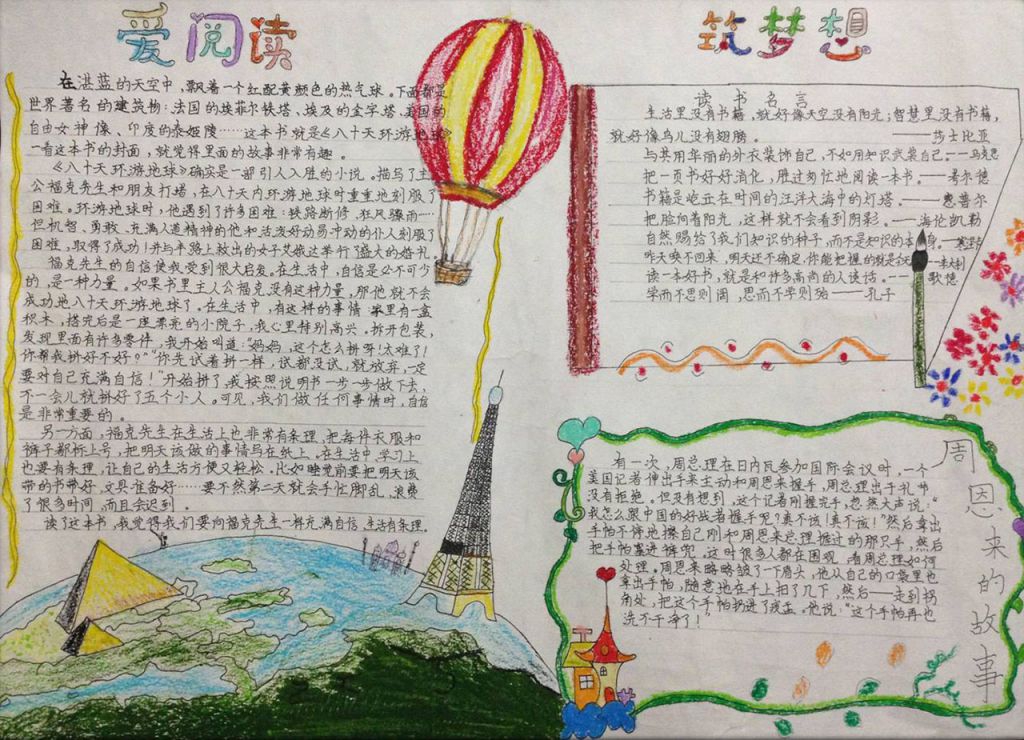 爱阅读
在湛蓝的天空中，飘着一个红配黄颜色的热气球。下面都是
世界著名的建筑物：法国的埃菲尔铁塔、埃及的金字塔、美国的
自由女神像、印度的泰姬陵……这本书就是《八十天环游地球》
一看这本书的封面，就觉得里面的故事非常有趣。
《八十天环游地球》确实是一部引人入胜的小说。描写了主
公福克先生和朋友打赌，在八十天内环游地球时重重地刻服了
困难。环游地球时，他遇到了许多困难：铁路断修、狂风骤雨……
但机智、勇敢、充满人道精神的他和活泼好动易冲动的仆人刻服了
困难，取得了成功！并与半路上救出的女子艾娥达举行了盛大的婚礼
福克先生的自信使我受到很大启发。在生活中，自信是必不可少
的，是一种力量。如果书里主人公福克没有这种力量，那他就不会
成功地八十天环游地球了。在生活中，有这样的事情
积木，搭完后是一座漂亮的小院子，我心里特别高兴。拆开包装，
发现里面有许多零件，我开始叫道：“妈妈，这个怎么拼呀！太难了！
你帮我拼好不好？”“你先试着拼一样，试都没试，就放弃，一定
要对自己充满自信！”开始拼了，我按照说明书一步一步做下去，
不一会儿就拼好了五个小人。可见，我们做任何事情时，自信
是非常重要的。
另一方面，福克先生在生活上也非常有条理，把每件衣服和
裤子都标上号，把明天该做的事情写在纸上。在生活中，学习上
也要有条理，让自己的生活方便又轻松。比如睡觉前要把明天该
带的书带好，文具准备好……要不然第二天就会手忙脚乱，浪费
了很多时间，而且会迟到。
读了这本书，我觉得我们要向福克先生一样充满自信，生活有条理。
筑梦想
读书名言
生活里没有书籍，就好像天空没有阳光；智慧里没有书籍，
就好像鸟儿没有翅膀。——莎士比亚
与其用华丽的外衣装饰自己，不如用知识武装自己。——马克思
把一页书好好消化，胜过匆忙地阅读一本书。——考尔德
书籍是屹立在时间的汪洋大海中的灯塔。——惠普尔
把脸向着阳光，这样就不会看到阴影。——海伦凯勒
自然赐给了我们知识的种子，而不是知识的本身。
昨天唤不回来，明天还不确定，你能把握的就是
读一本好书，就是和许多高尚的人谈话。——歌德
学而不思则罔，思而不学则殆——孔子
周恩来的故事
有一次，周总理在日内瓦参加国际会议时，一个
美国记者伸出手来主动和周恩来握手，周总理出于礼节
没有拒绝。但没有想到，这个记者刚握完手，忽然大声说：“
我怎么跟中国的好战者握手呢？真不该！真不该！”然后拿出
手帕不停地擦自己刚和周恩来总理握过的那只手，然后
把手帕塞进裤兜。这时很多人都在围观，看周总理如何
处理。周恩来略略皱了一下眉头，他从自己的口袋里也
拿出手帕，随意地在手上扫了几下，然后——走到拐
角处，把这个手帕扔进了痰盂。他说：“这个手帕再也
洗不干净了！”